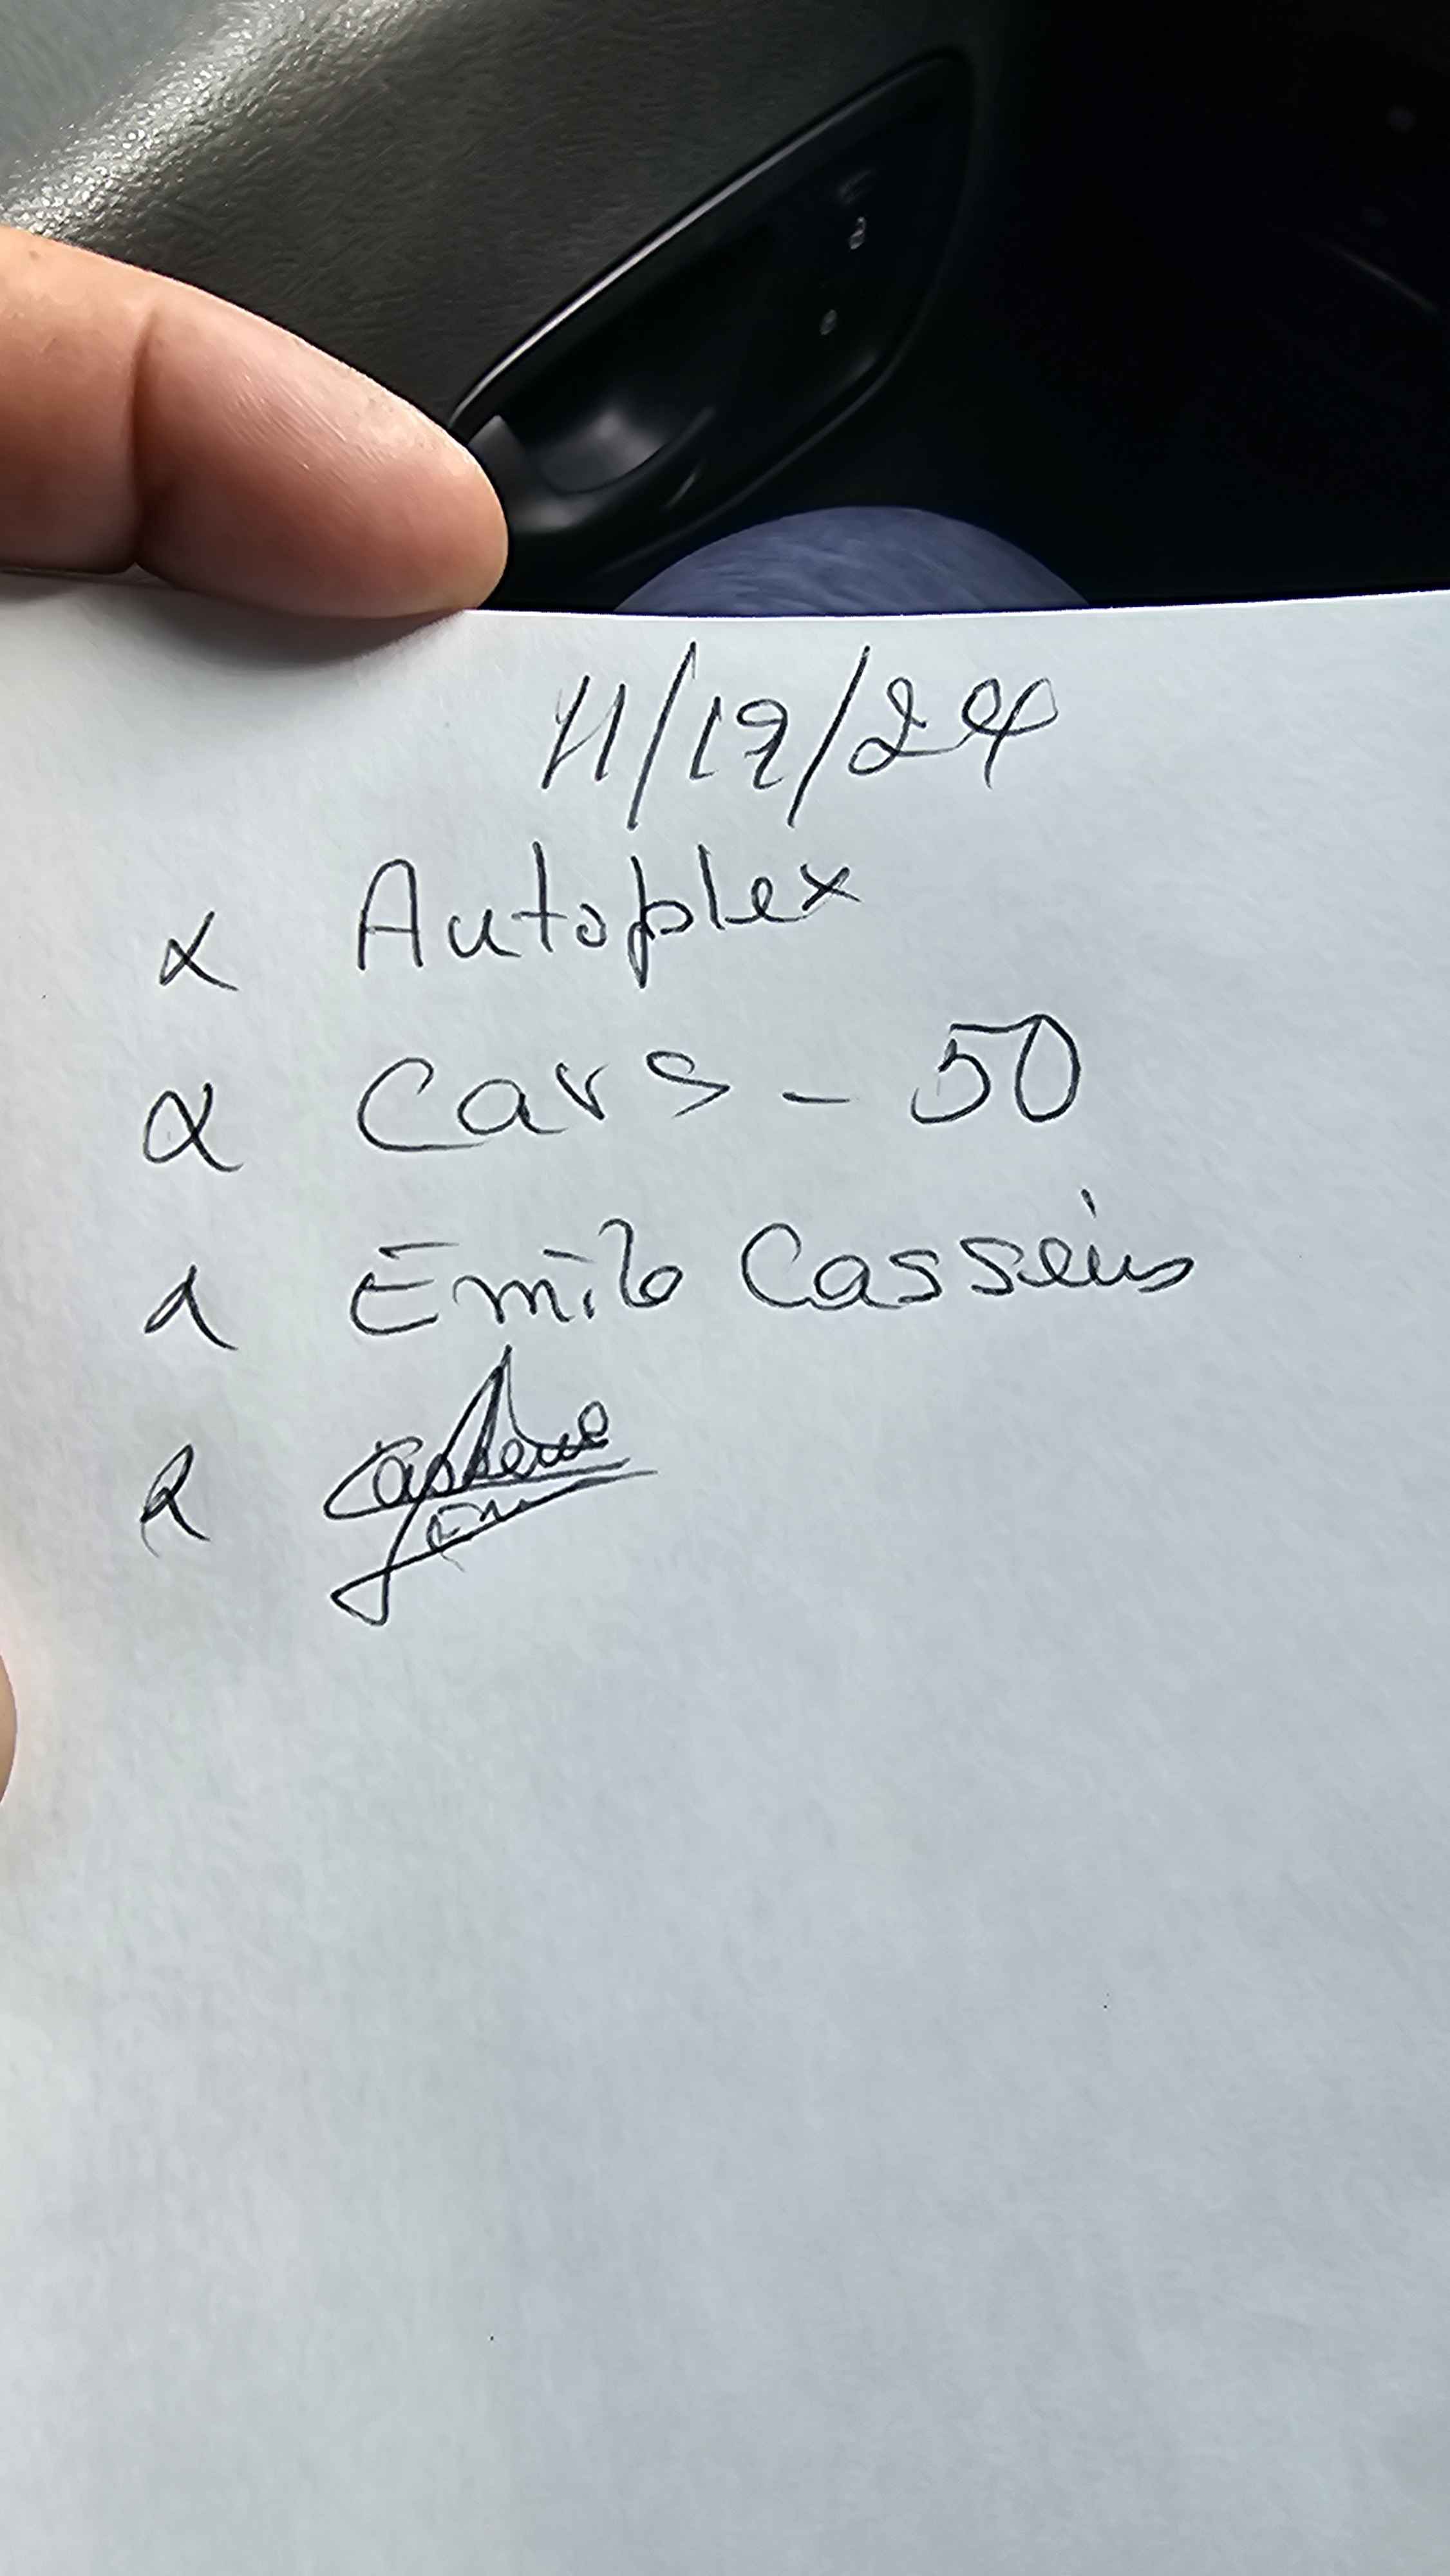 11/19/24
α Autoplex
α Cars - 50
α Emilo Casseus
α